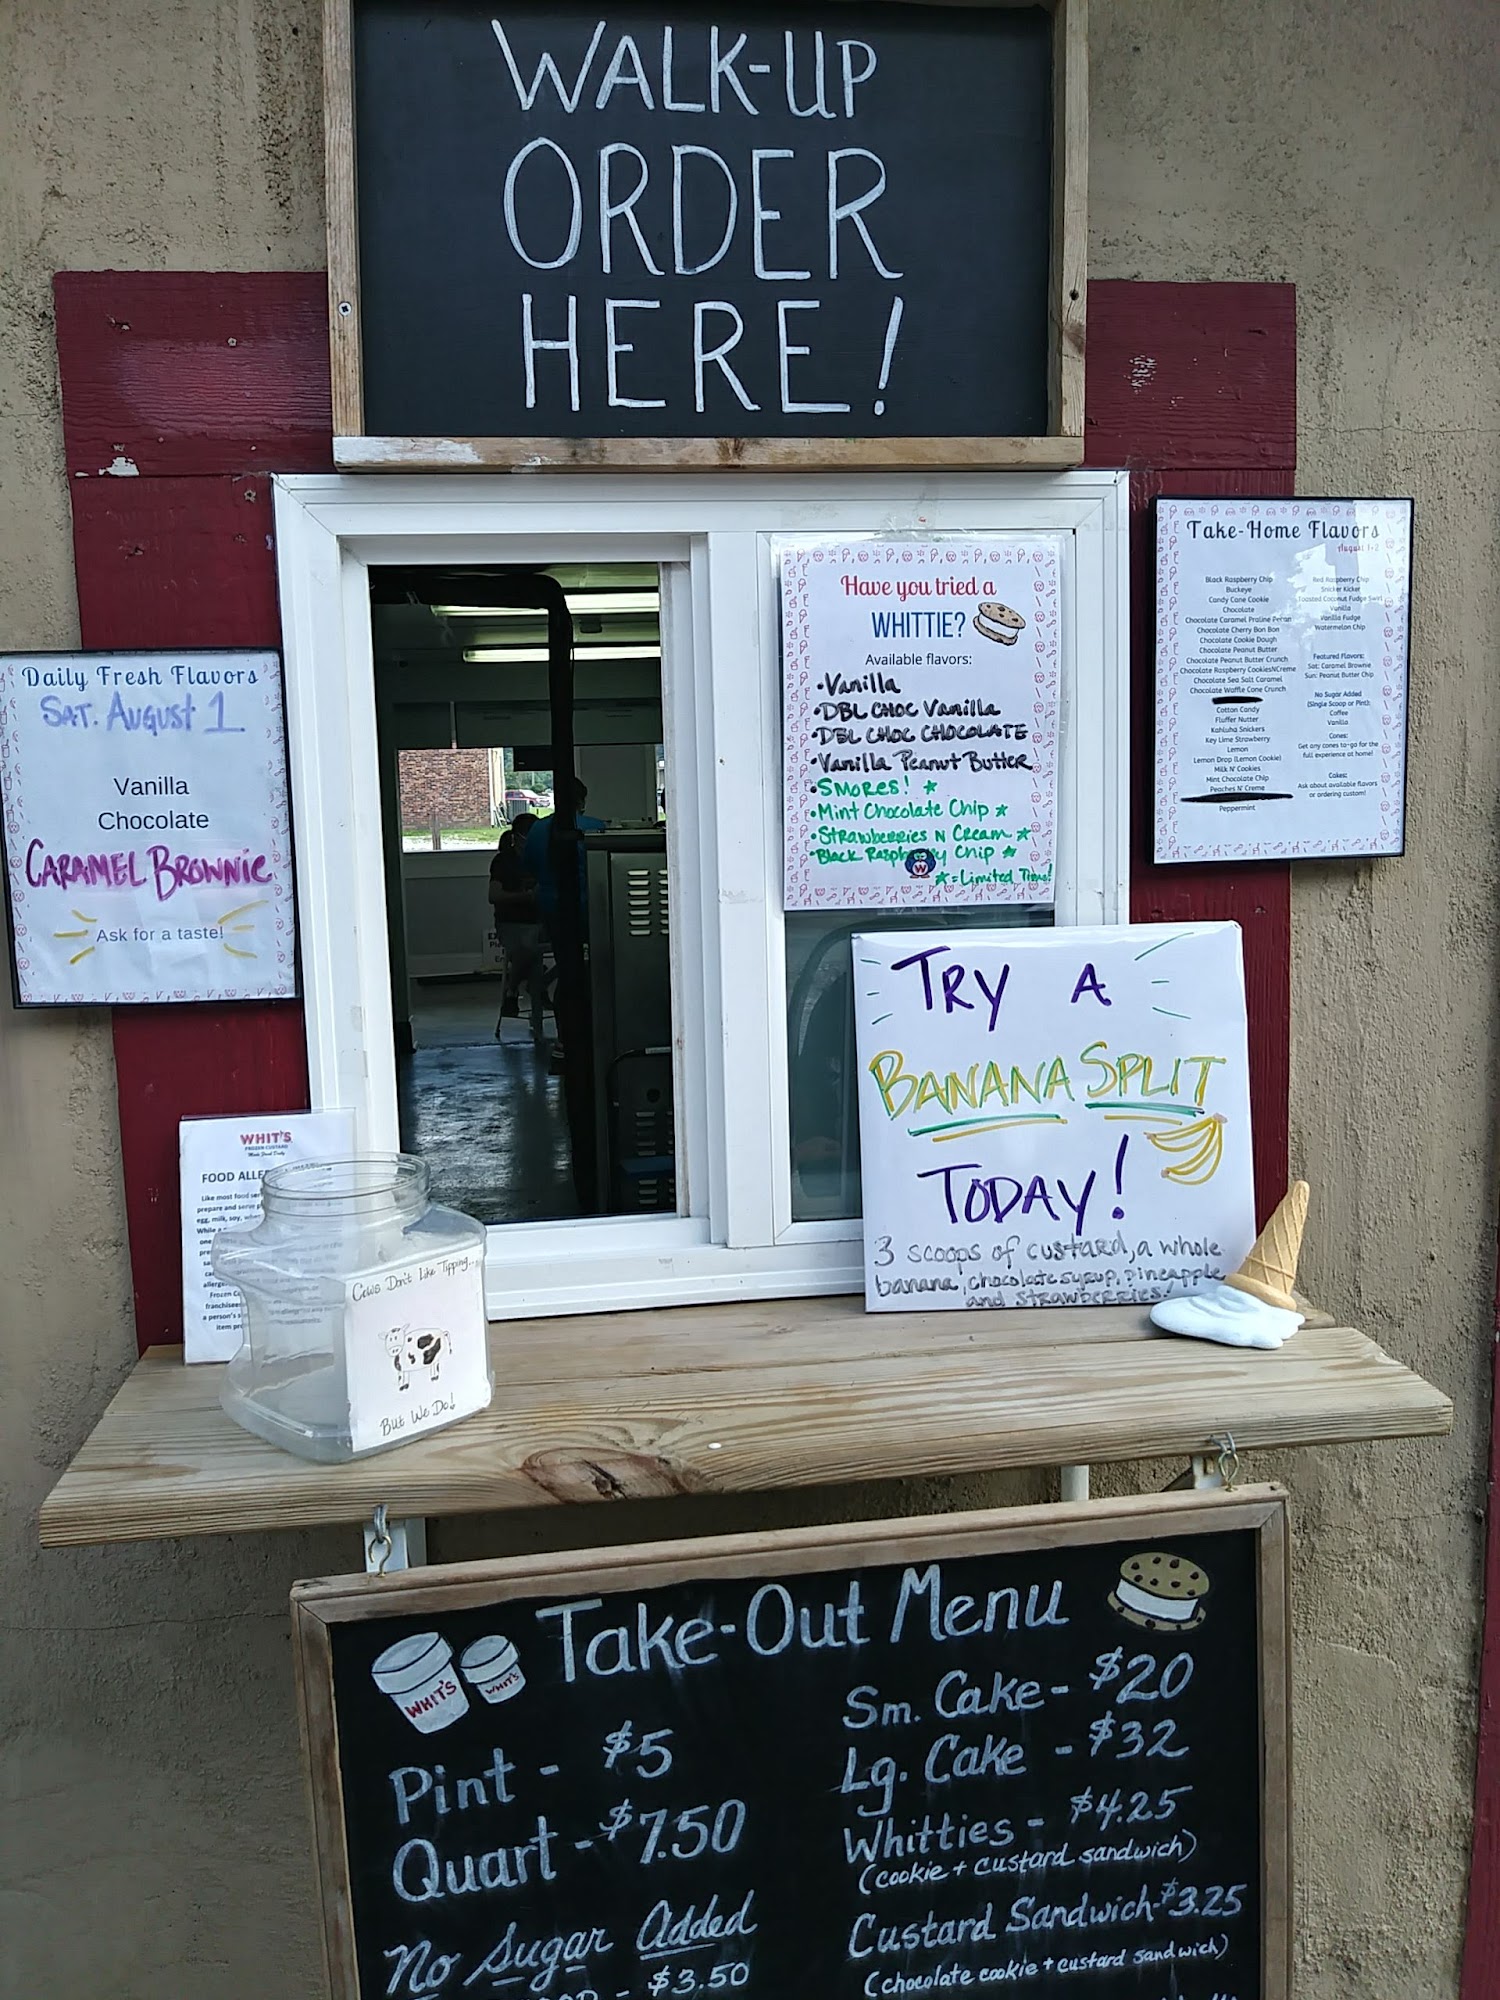 WALK-UP
ORDER
HERE!
Daily Fresh Flavors
SAT. AUGUST 1
Vanilla
Chocolate
CARAMEL BROWNIE
Ask for a taste!
Have you tried a
WHITTIE?
Available flavors:
•Vanilla
•DBL CHOC Vanilla
•DBL CHOC CHOCOLATE
•Vanilla Peanut Butter
•SMORES! ★
•Mint Chocolate Chip ★
•Strawberries N Cream ★
•Black Raspberry Chip ★
★=Limited Time!
Take-Home Flavors
August 1+2
Black Raspberry Chip
Buckeye
Candy Cane Cookie
Chocolate
Chocolate Caramel Praline Pecan
Chocolate Cherry Bon Bon
Chocolate Cookie Dough
Chocolate Peanut Butter
Chocolate Peanut Butter Crunch
Chocolate Raspberry CookiesNCreme
Chocolate Sea Salt Caramel
Chocolate Waffle Cone Crunch
Cotton Candy
Fluffer Nutter
Kahluha Snickers
Key Lime Strawberry
Lemon
Lemon Drop (Lemon Cookie)
Milk N' Cookies
Mint Chocolate Chip
Peaches N' Creme
Peppermint
Red Raspberry Chip
Snicker Kicker
Toasted Coconut Fudge Swirl
Vanilla
Vanilla Fudge
Watermelon Chip
Featured Flavors:
Sat: Caramel Brownie
Sun: Peanut Butter Chip
No Sugar Added
(Single Scoop or Pint):
Coffee
Vanilla
Cones:
Get any cones to-go for the
full experience at home!
Cakes:
Ask about available flavors
or ordering custom!
TRY A
BANANA SPLIT
TODAY!
3 scoops of custard, a whole
banana, chocolate syrup, pineapple
and strawberries!
WHIT'S
FROZEN CUSTARD
Made Fresh Daily
FOOD ALLE
Like most food ser
prepare and serve p
egg, milk, soy, whe
While
one
Frozen C
franchisee
a person's s
item pr
Cows Don't Like Tipping...
But We Do!
Take-Out Menu
WHIT'S
WHIT'S
Pint - $5
Quart - $7.50
No Sugar Added
- $3.50
Sm. Cake - $20
Lg. Cake - $32
Whitties - $4.25
(cookie + custard sandwich)
Custard Sandwich-$3.25
(chocolate cookie + custard sandwich)